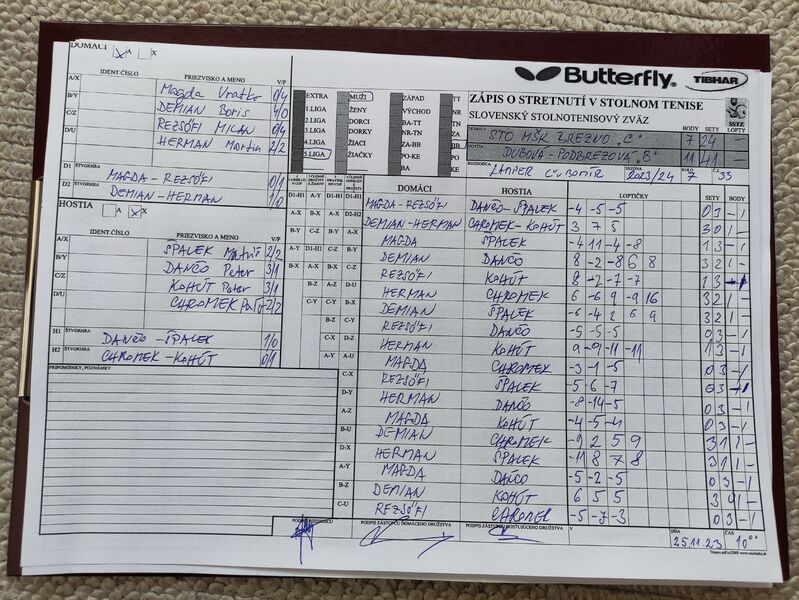 DOMÁCI X A X
IDENT.ČÍSLO PRIEZVISKO A MENO V/P
A/X Magda Vratko 0/4
B/Y DEMIAN Boris 4/0
C/Z REZSÖFI MILAN 0/4
D/U HERMAN Martin 2/2
D1 ŠTVORHRA MAGDA-REZSÖFI 0/1
D2 DEMIAN-HERMAN 1/0
HOSTIA A X X
IDENT.ČÍSLO PRIEZVISKO A MENO V/P
A/X ŠPALEK 2/2
B/Y DANČO Peter 3/1
C/Z KOHÚT Peter 3/1
D/U CHROMEK 2/2
H1 ŠTVORHRA DANČO-ŠPALEK 1/0
H2 CHROMEK-KOHÚT 0/1
PRIPOMIENKY, POZNÁMKY
Butterfly TIBHAR
EXTRA MUŽI ZÁPAD TT
1.LIGA ŽENY VÝCHOD NR
2.LIGA DORCI BA-TT BR-TN
3.LIGA DORKY BA
4.LIGA ŽIACI ZA-BB ZA
5.LIGA ŽIAČKY PO-KE
ZÁPIS O STRETNUTÍ V STOLNOM TENISE
SLOVENSKÝ STOLNOTENISOVÝ ZVÄZ
SSTZ
DOMÁCI STO MŠK BREZNO "C" BODY 7 SETY 24 LOPTY
HOSTIA DUBOVÁ-PODBREZOVÁ "B" 11 41
ROZHODCA LAMPER ĽUBOMÍR 2023/24 KOLO 7
DOMÁCI HOSTIA LOPTIČKY SETY BODY
MAGDA-REZSÖFI DANČO-ŠPALEK -4 -5 -5 0 3 - 1
DEMIAN-HERMAN CHROMEK-KOHÚT 3 7 5 3 0 1 -
MAGDA ŠPALEK -4 11 -4 -8 1 3 - 1
DEMIAN DANČO 8 -2 -8 6 8 3 2 1 -
REZSÖFI KOHÚT 8 -2 -7 -7 1 3 - 1
HERMAN CHROMEK 6 -6 9 -9 16 3 2 1 -
DEMIAN ŠPALEK -6 -4 2 6 9 3 2 1 -
REZSÖFI DANČO -5 -5 -5 0 3 - 1
HERMAN KOHÚT 9 -9 -11 -11 1 3 - 1
MAGDA CHROMEK -3 -1 -5 0 3 - 1
REZSÖFI ŠPALEK -5 -6 -7 0 3 - 1
HERMAN DANČO -8 -14 -5 0 3 - 1
MAGDA KOHÚT -4 -5 -4 0 3 - 1
DEMIAN CHROMEK -9 2 5 9 3 1 1 -
HERMAN ŠPALEK -11 8 7 8 3 1 1 -
MAGDA DANČO -5 -2 -5 0 3 - 1
DEMIAN KOHÚT 6 5 5 3 1 -
REZSÖFI CHROMEK -5 -7 -3 0 3 - 1
PODPIS ROZHODCU PODPIS ZÁSTUPCU DOMÁCEHO DRUŽSTVA PODPIS ZÁSTUPCU HOSŤUJÚCEHO DRUŽSTVA V DŇA 25.11.23 ČAS 10⁰⁰